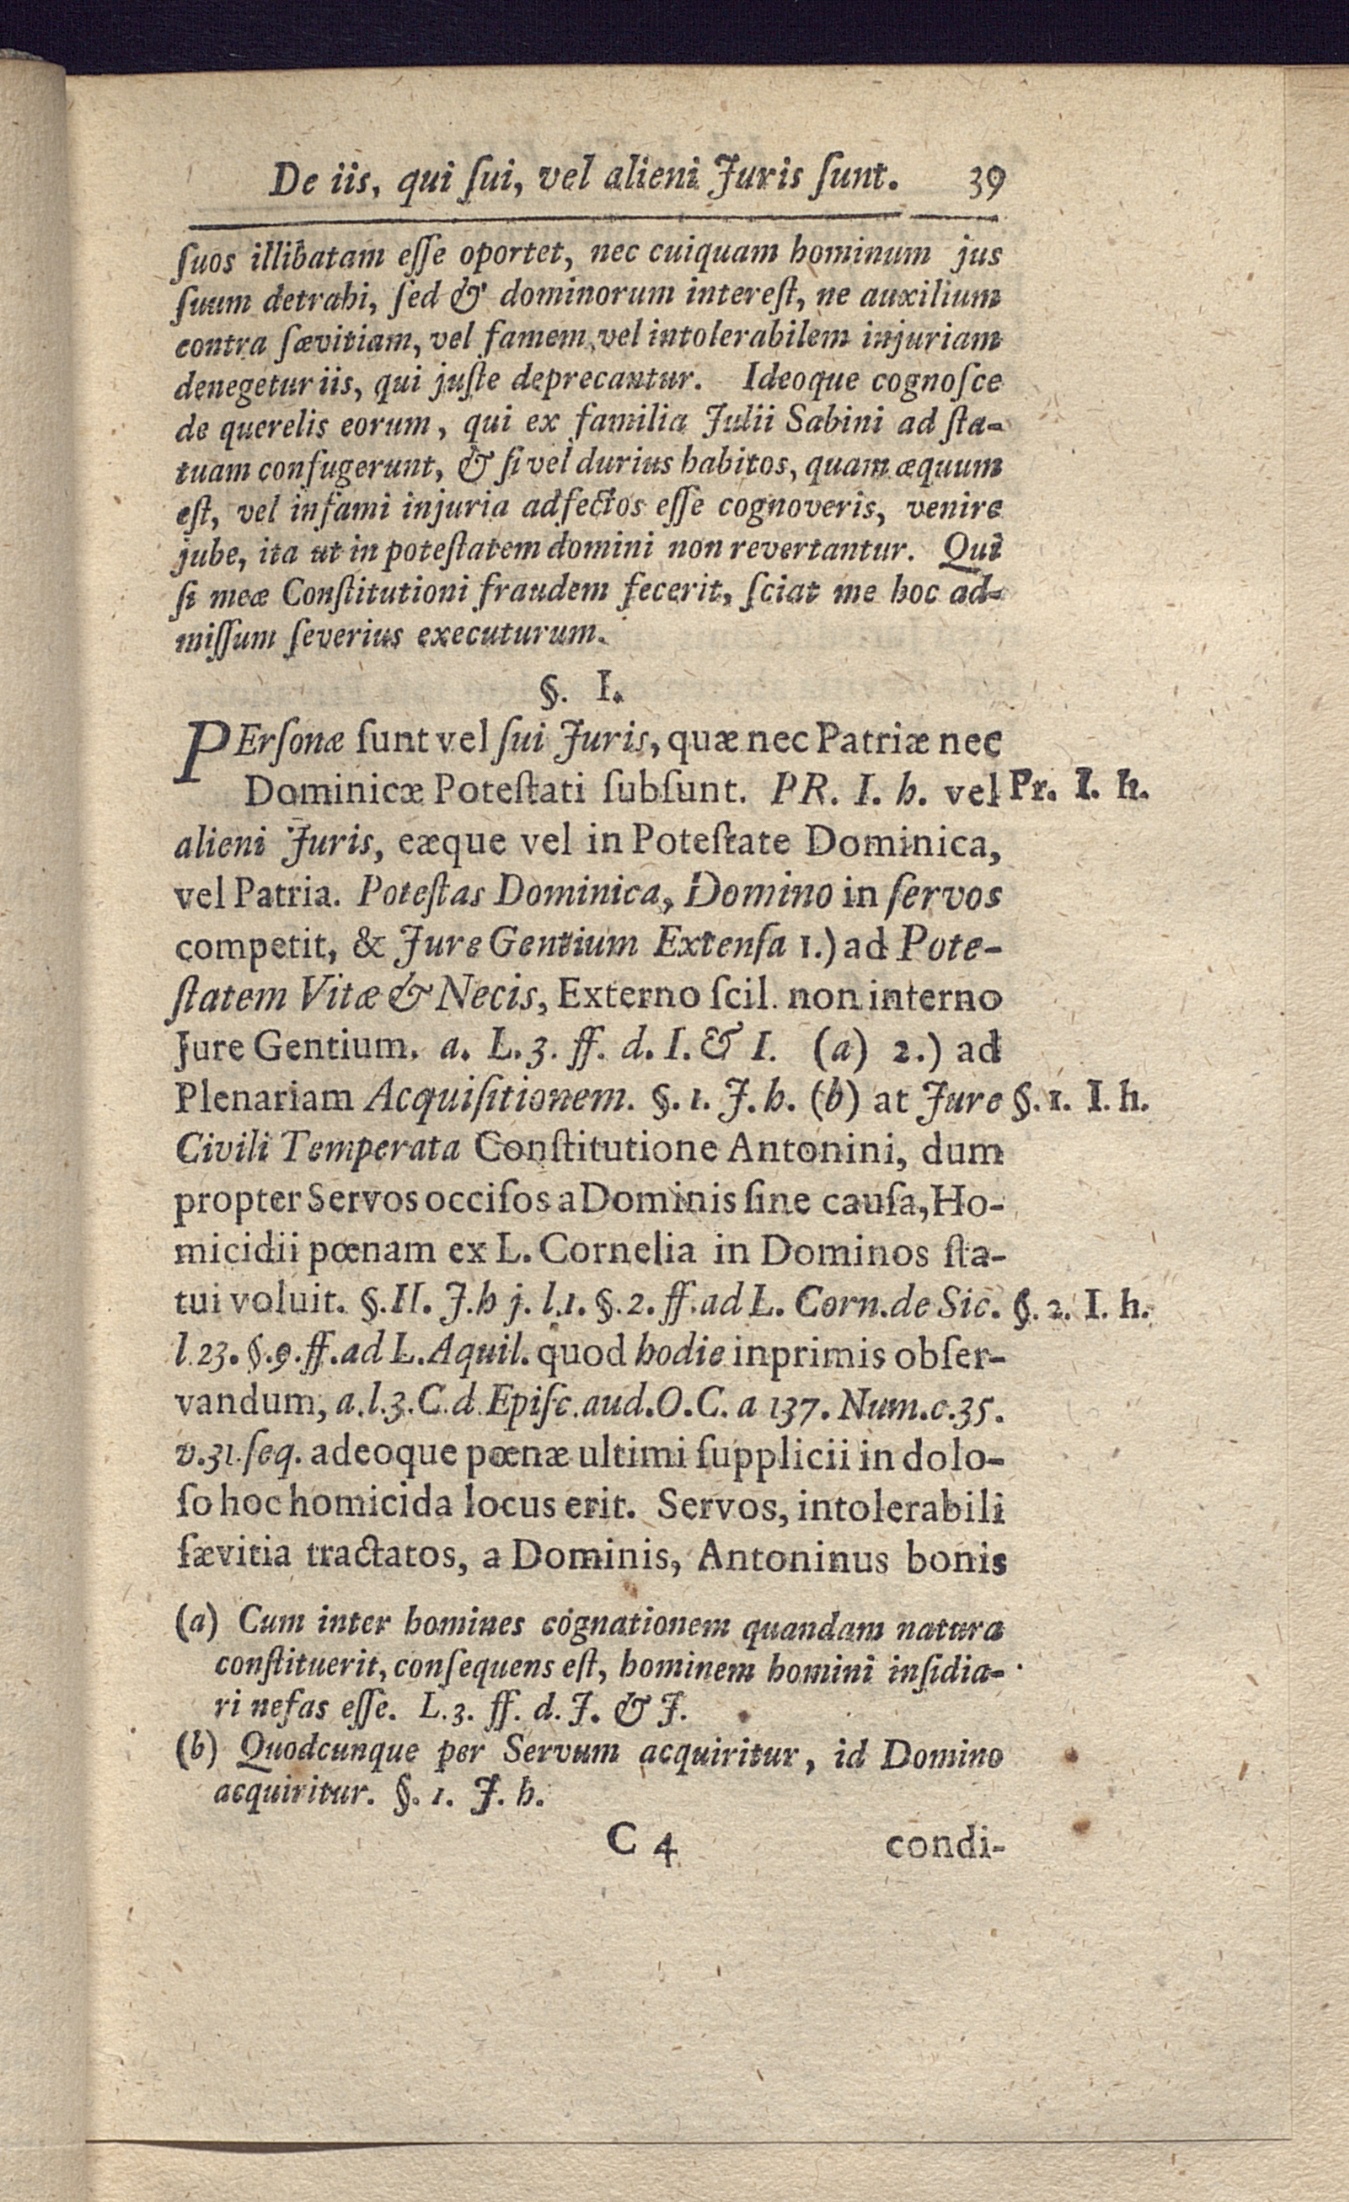 De iis, qui ſui, vel alieni Juris ſunt. 39
ſuos illibatam eſſe oportet, nec cuiquam hominum jus
ſuum detrahi, ſed & dominorum intereſt, ne auxilium
contra ſævitiam, vel famem, vel intolerabilem injuriam
denegetur iis, qui juſte deprecantur. Ideoque cognoſce
de querelis eorum, qui ex familia Julii Sabini ad ſta-
tuam confugerunt, & ſi vel durius habitos, quam æquum
eſt, vel infami injuria adfectos eſſe cognoveris, venire
jube, ita ut in poteſtatem domini non revertantur. Qui
ſi meæ Conſtitutioni fraudem fecerit, ſciat me hoc ad-
miſſum ſeverius executurum.
§. I.
PErſonæ ſunt vel ſui Juris, quæ nec Patriæ nec
Dominicæ Poteſtati ſubſunt. PR. I. h. vel Pr. I. h.
alieni Juris, eæque vel in Poteſtate Dominica,
vel Patria. Poteſtas Dominica, Domino in ſervos
competit, & Jure Gentium Extenſa 1.) ad Pote-
ſtatem Vitæ & Necis, Externo ſcil. non interno
Jure Gentium. a. L. 3. ff. d. I. & I. (a) 2.) ad
Plenariam Acquiſitionem. §. 1. J. h. (b) at Jure §. 1. I. h.
Civili Temperata Conſtitutione Antonini, dum
propter Servos occiſos a Dominis ſine cauſa, Ho-
micidii pœnam ex L. Cornelia in Dominos ſta-
tui voluit. §. II. J. h j. l. 1. §. 2. ff. ad L. Corn. de Sic. §. 2. I. h.
l. 23. §. 9. ff. ad L. Aquil. quod hodie inprimis obſer-
vandum, a. l. 3. C. d. Epiſc. aud. O. C. a 137. Num. c. 35.
v. 31. ſeq. adeoque pœnæ ultimi ſupplicii in dolo-
ſo hoc homicida locus erit. Servos, intolerabili
ſævitia tractatos, a Dominis, Antoninus bonis
(a) Cum inter homines cognationem quandam natura
conſtituerit, conſequens eſt, hominem homini inſidia-
ri nefas eſſe. L. 3. ff. d. J. & J.
(b) Quodcunque per Servum acquiritur, id Domino
acquiritur. §. 1. J. h.
C 4 condi-